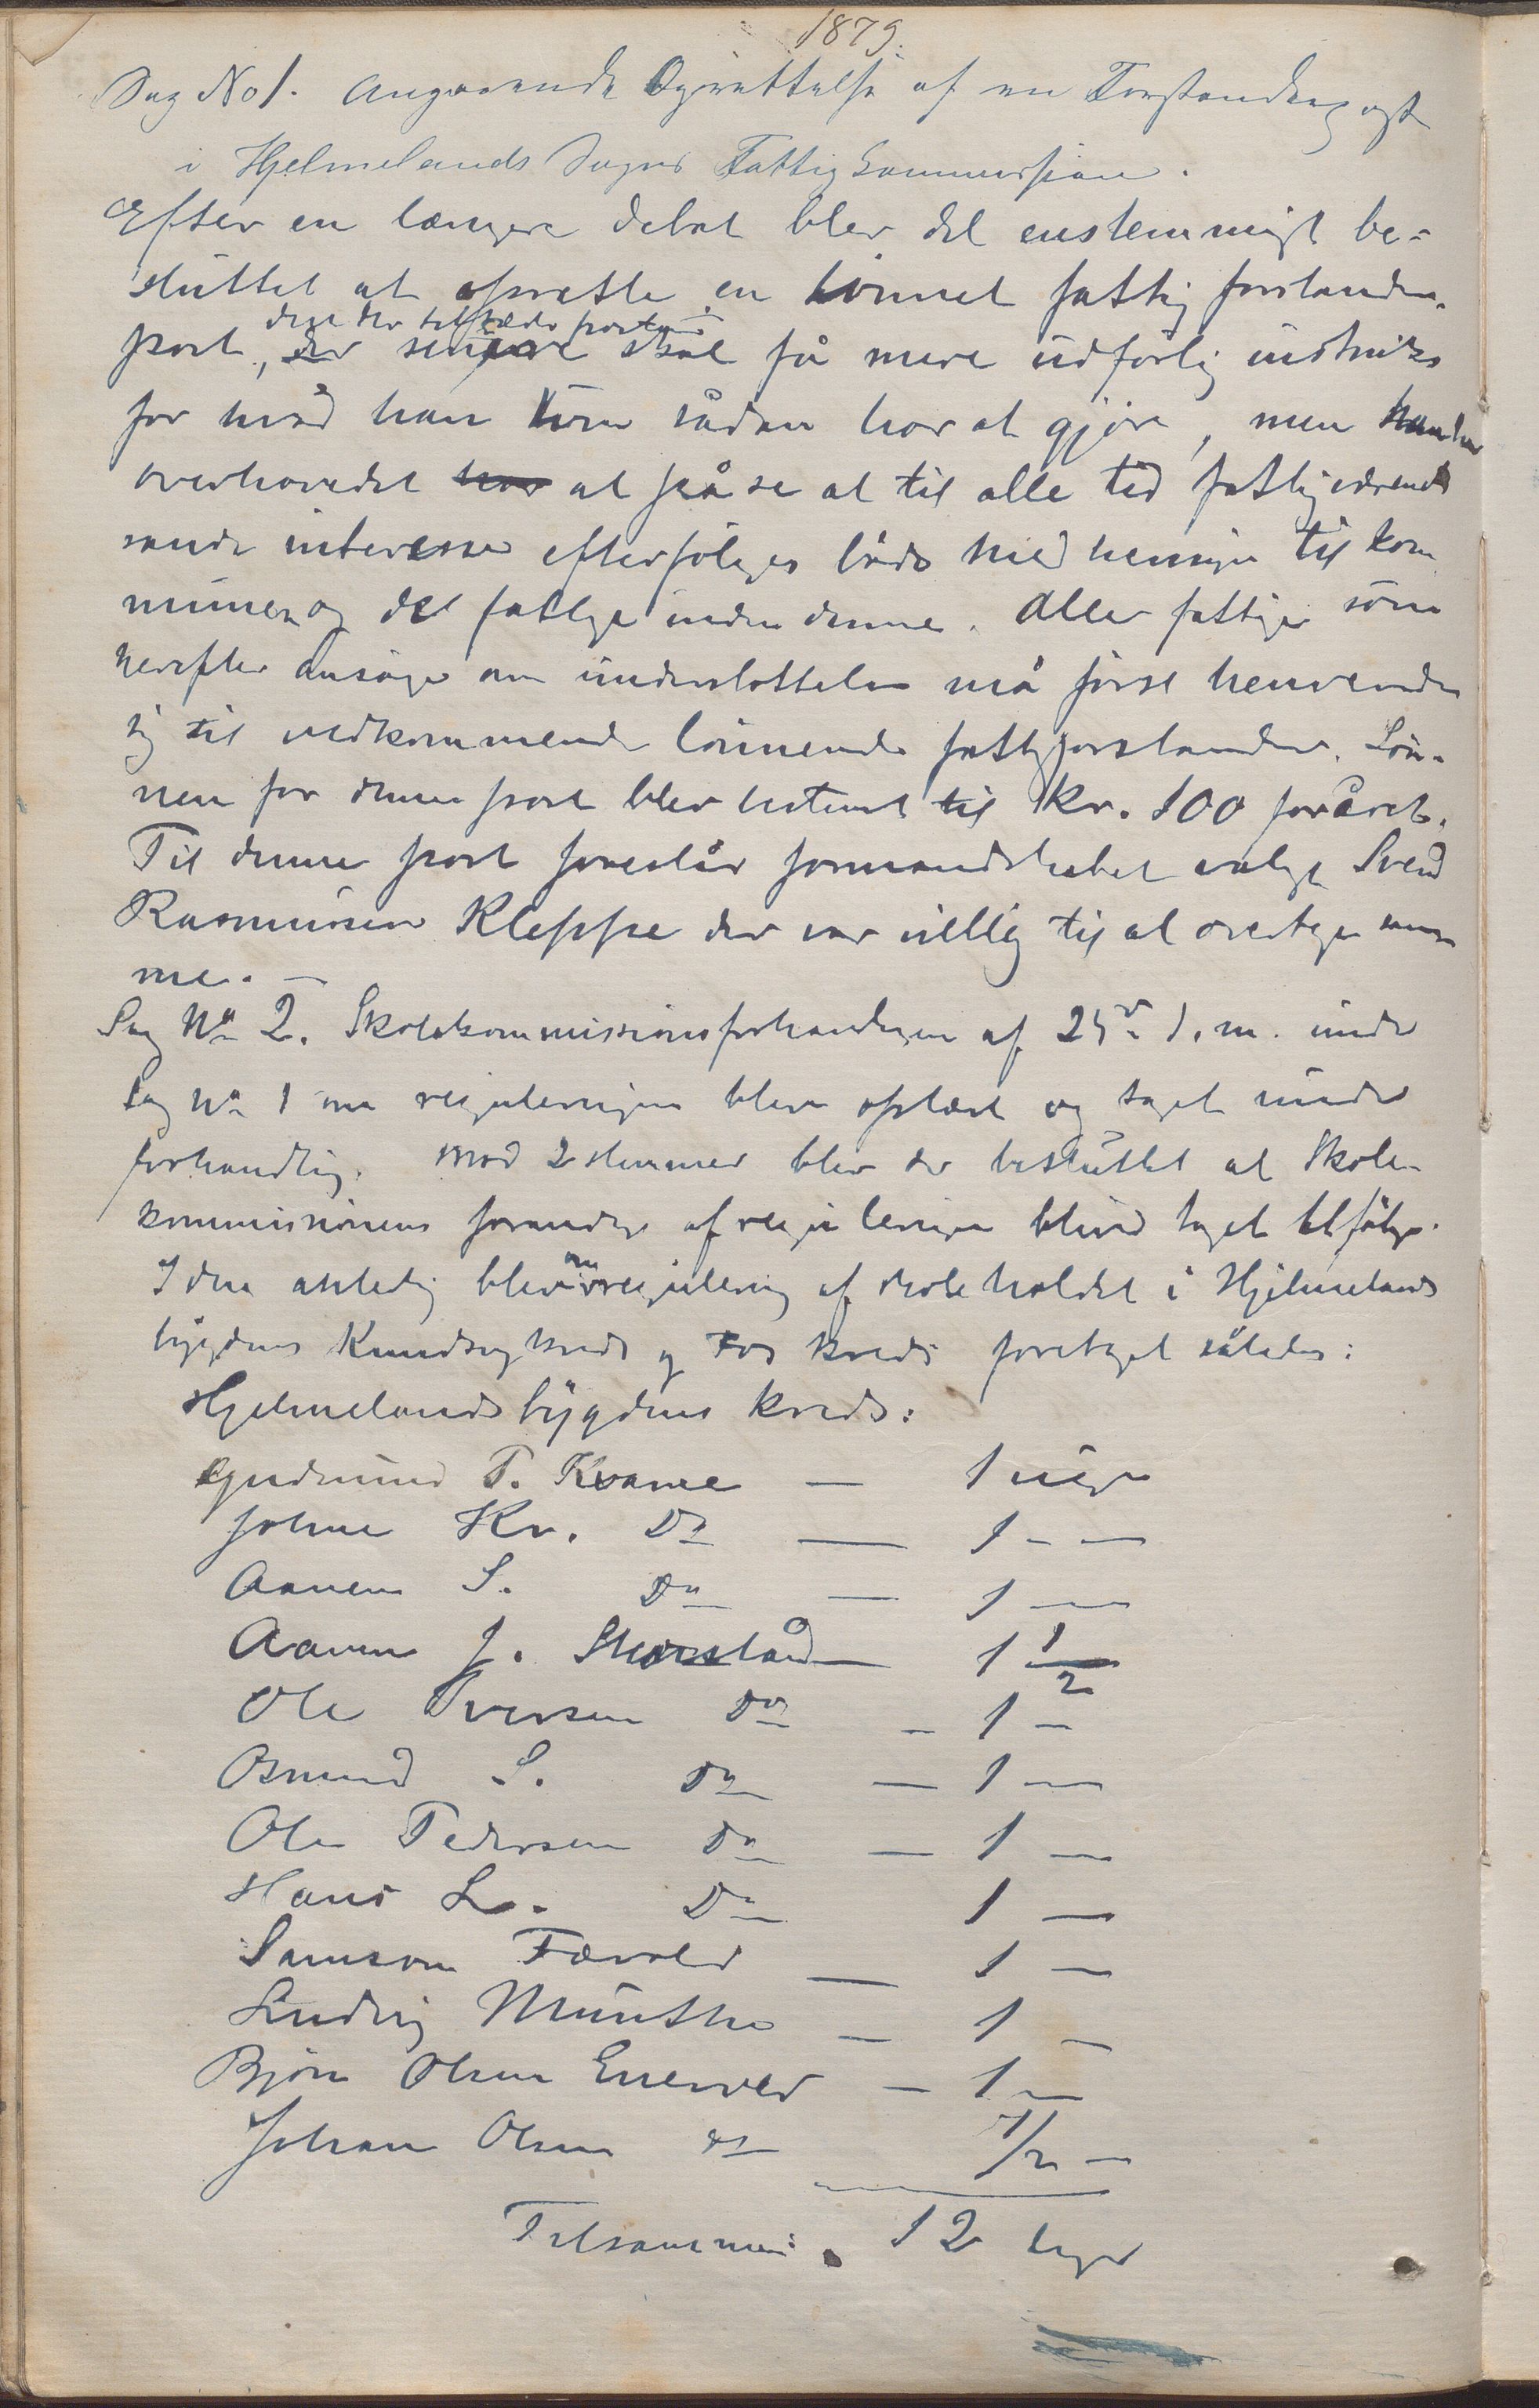 1879.
Sag No 1. Angaaende Oprettelse af en Forstanderpost
i Hjelmelands Sogns Fattigkommission.
Efter en længere debat blev det enstemmigt be-
sluttet at oprette en lönnet fattigforstander-
post, der senere skal få mere udförlig instruks
for hvad han som sådan har at gjöre, men han har
overhovedet har at påse at til alle tid fattigvæsenets
sande interesse efterfölges både med hensyn til kom
munen og det fattige inden denne. Alle fattige som
herefter ansöge om understöttelse må först henvende
sig til vedkommende lönnende fattigforstander. Lön-
nen for denne post blev bestemt til Kr. 100 for året.
Til denne post foreslår formandskabet valgt Svend
Rasmussen Kleppe der var villig til at overtage sam-
me. —
Sag No 2. Skolekommissionsforhandlingen af 25de d. m. under
Sag No 1 om reguleringen blev oplæst og taget under
forhandling. Mod 2 stemmer blev der besluttet at Skole-
kommissionens forandring af reguleringen bliver taget tilfölge.
I den anledning blev ny regulering af skoleholdet i Hjelmelands
bygdens Knudsvig kreds og Fos kreds foretaget således:
Hjelmelandsbygdens kreds:
Gudmund T. Kvame — 1 uge
Johne Kr. Do — 1 - —
Aanen S. Do — 1 —
Aanen J. — 1 1/2
Ole Iversen Do — 1 —
Osmund S. Do — 1 —
Ole Pedersen Do — 1 —
Hans L. Do 1 —
Samson Fævold — 1 —
Ludvig Munthe — 1 —
Björn Olsen Enevold — 1 —
Johan Olsen do 1/2 —
Tilsammen: 12 uger